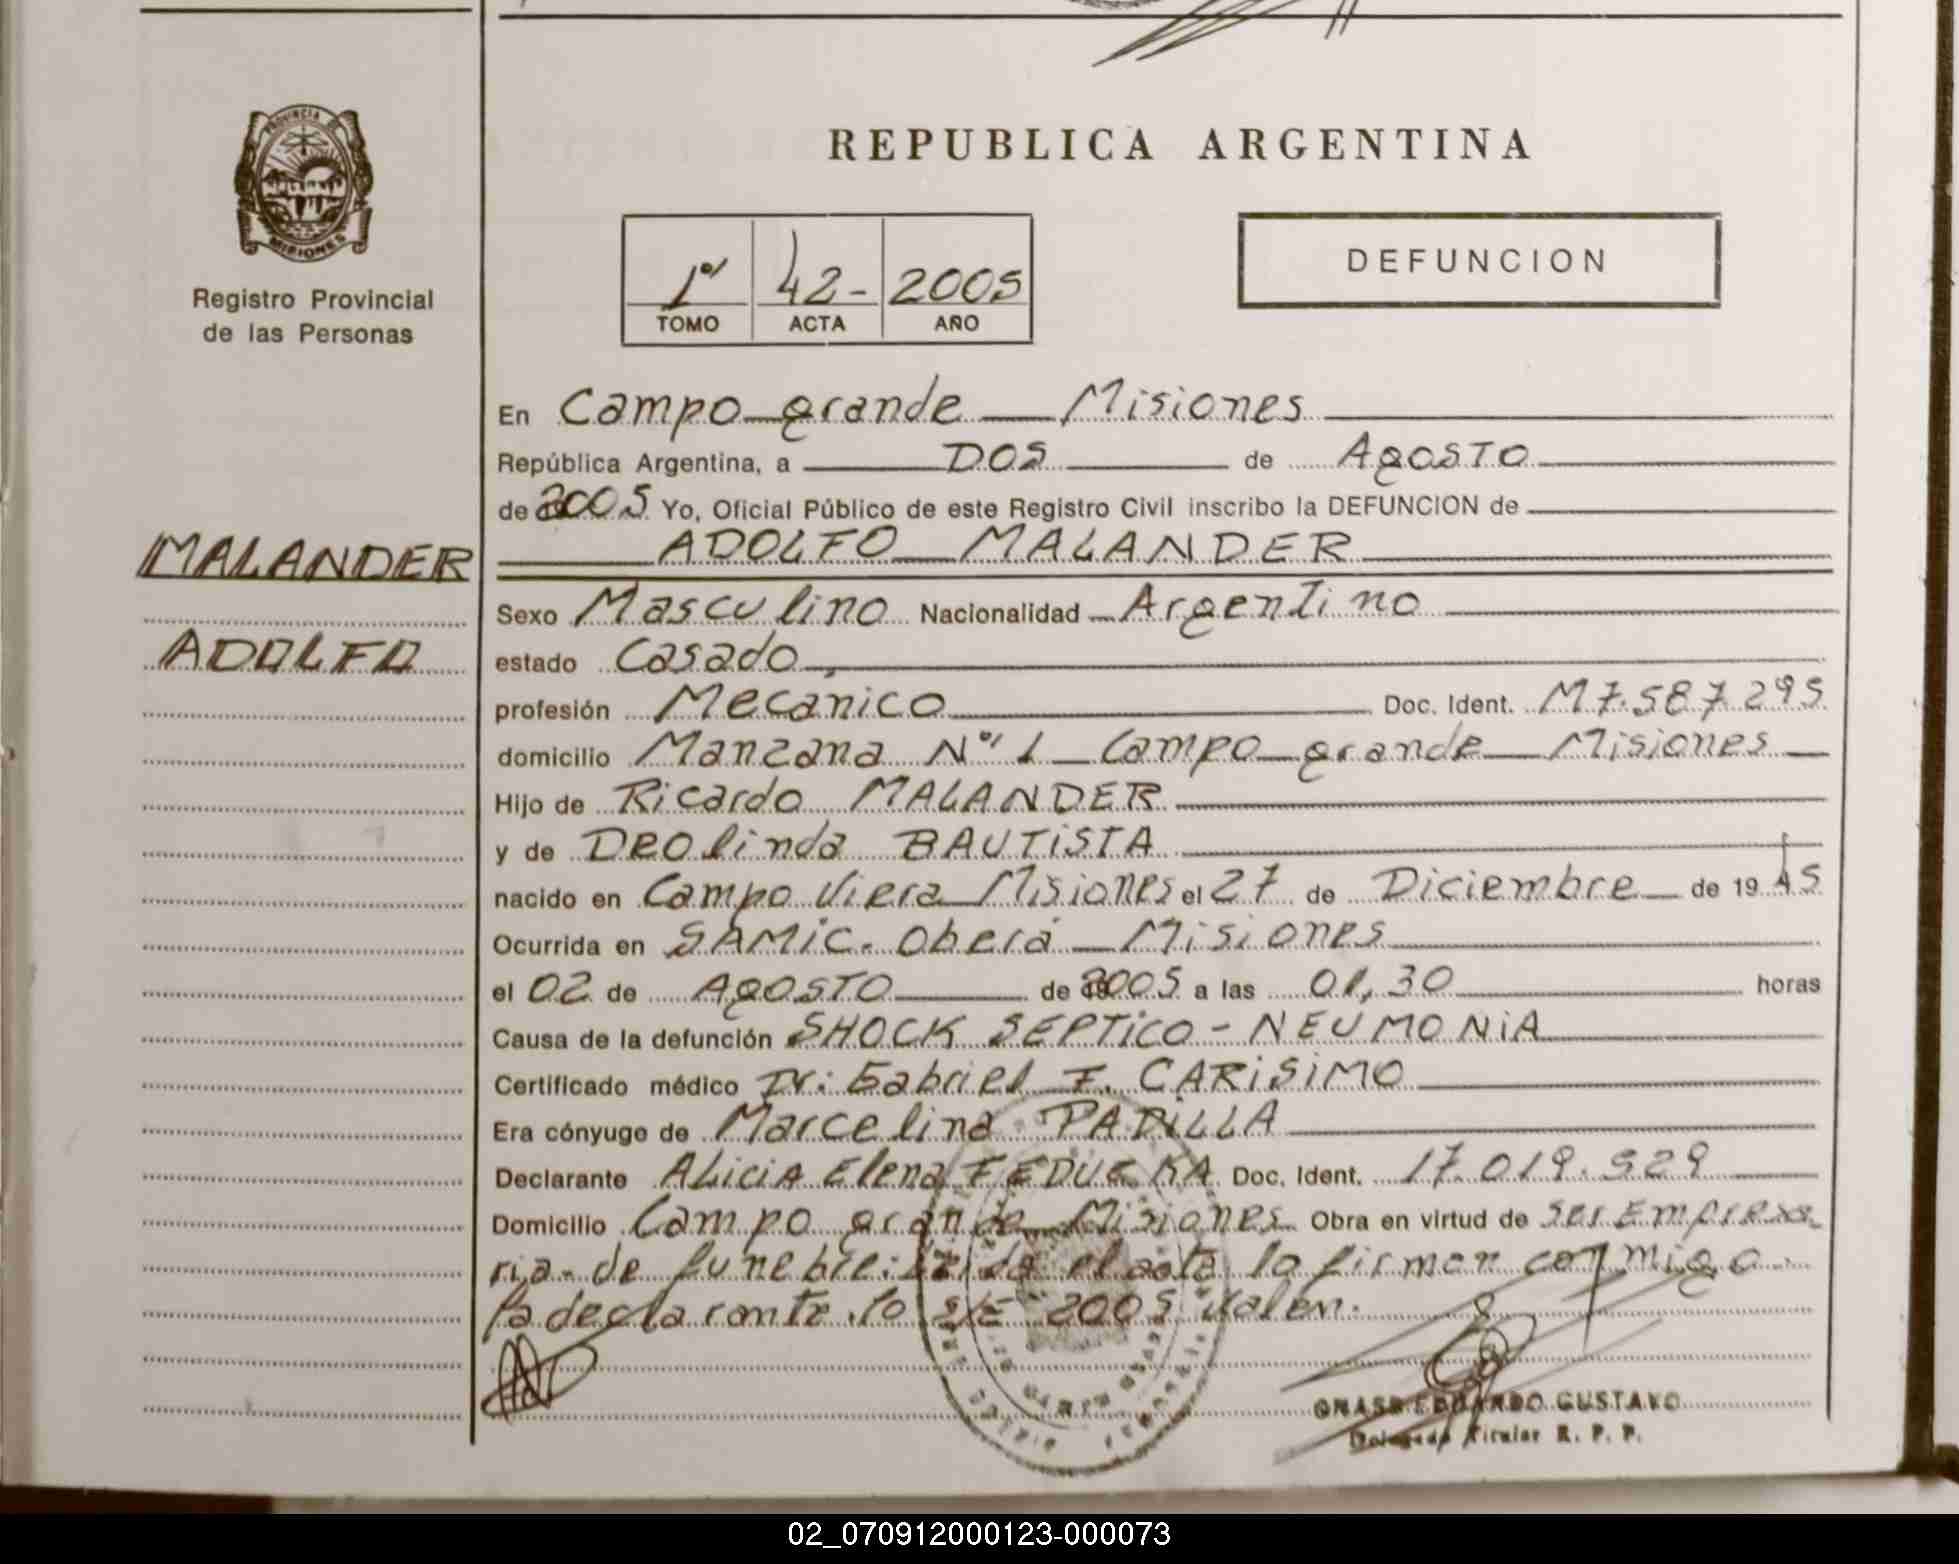 PROVINCIA DE
MISIONES
Registro Provincial
de las Personas
MALANDER
ADOLFO
REPUBLICA ARGENTINA
1º 42- 2005
TOMO ACTA AÑO
DEFUNCION
En Campo grande Misiones
República Argentina, a DOS de AgOSTO
de 2005 Yo, Oficial Público de este Registro Civil inscribo la DEFUNCION de
ADOLFO MALANDER
Sexo Masculino Nacionalidad Argentino
estado Casado
profesión Mecánico Doc. Ident. M7.587.295
domicilio Manzana Nº 1 Campo grande Misiones
Hijo de Ricardo MALANDER
y de Deolinda BAUTiSTA
nacido en Campo Viera Misiones el 27 de Diciembre de 1945
Ocurrida en SAMiC. Oberá Misiones
el 02 de AgOSTO de 2005 a las 01,30 horas
Causa de la defunción SHOCK SEPTiCO - NEUMONiA
Certificado médico Dr: Gabriel F. CARiSiMO
Era cónyuge de Marcelina PADiLLA
Declarante ALiciA Elena Doc. Ident. 17.019.529
Domicilio Campo grande Misiones Obra en virtud de ser Empresa
ria de funebre: Leida el acta la firman conmigo
la declarante. lo s/E 2005 valen.
EDUARDO GUSTAVO
Delegado Titular R. P. P.
02_070912000123-000073